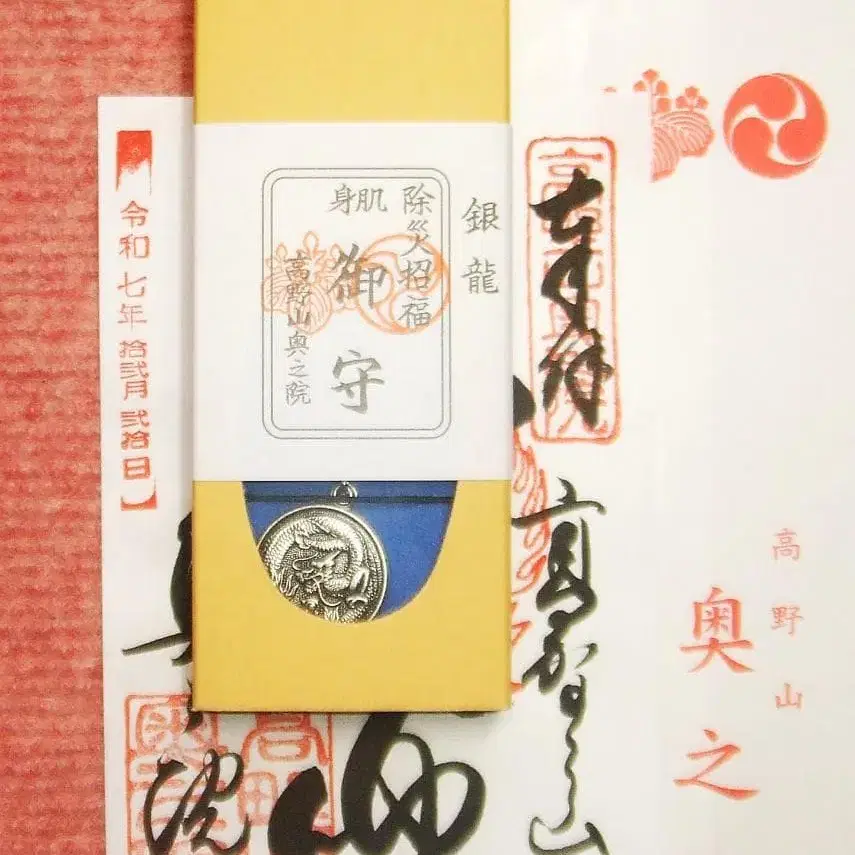 高野山
奥之
奉拝
高野山
銀龍
除災招福
肌身
御守
高野山奥之院
院
令和七年拾弐月弐拾日